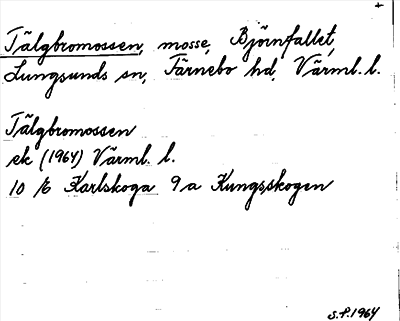 +
Tälgbromossen, mosse, Björnfallet,
Lungsunds sn, Färnebo hd, Värml. l.
Tälgbromossen
ek (1964) Värml. l.
10 E Karlskoga 9 a Kungsskogen
S.P. 1964